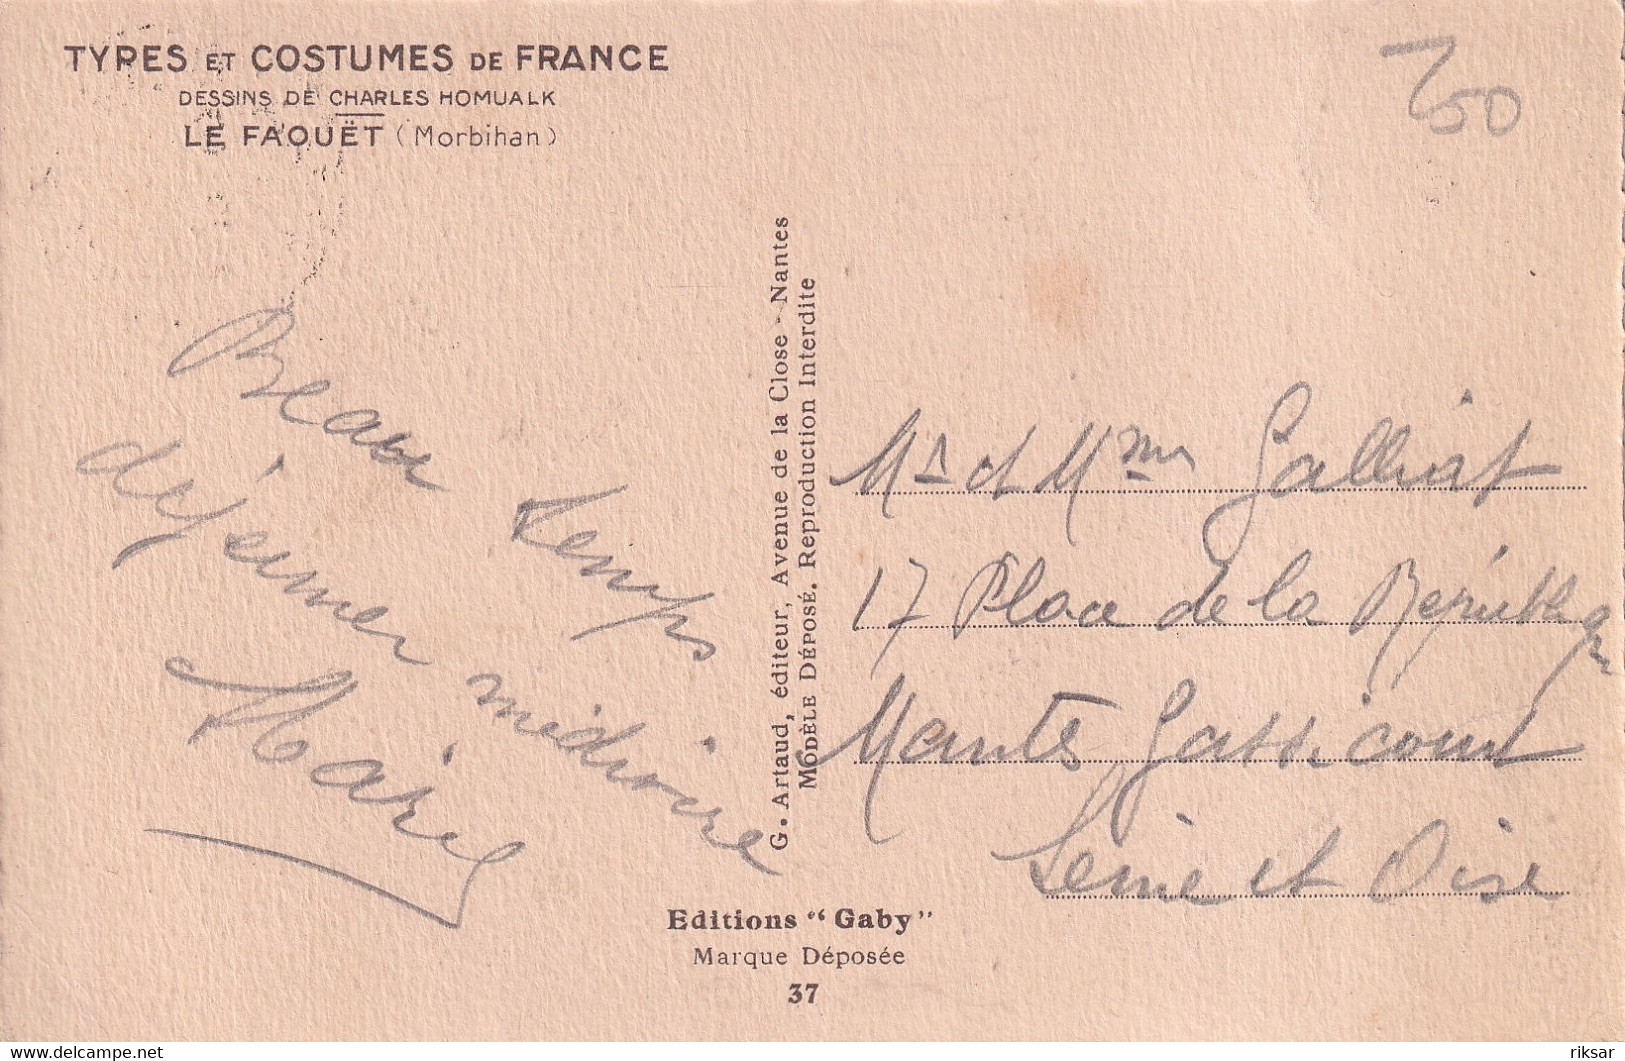 TYPES ET COSTUMES DE FRANCE
DESSINS DE CHARLES HOMUALK
LE FAOUËT (Morbihan)
50
Beau temps
déjeuner médiocre
G. Artaud, éditeur, Avenue de la Close - Nantes
MODÈLE DÉPOSÉ. Reproduction Interdite
Mr et Mme Galliot
17 Place de la République
Mantes Gassicourt
Seine et Oise
Editions "Gaby"
Marque Déposée
37
https://www.delcampe.net
riksar